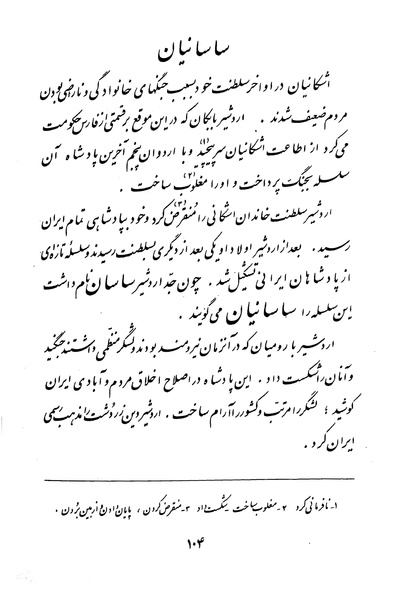 ساسانیان
اشکانیان در اواخر سلطنت خود بسبب جنگهای خانوادگی و ناراضی بودن
مردم ضعیف شدند . اردشیر بابکان که در این موقع بر قسمتی از فارس حکومت
می‌کرد از اطاعت اشکانیان سرپیچید (۱) و با اردوان پنجم آخرین پادشاه آن
سلسله بجنگ پرداخت و او را مغلوب ساخت (۲) .
اردشیر سلطنت خاندان اشکانی را منقرض کرد (۳) و خود بپادشاهی تمام ایران
رسید . بعد از اردشیر اولاد او یکی بعد از دیگری بسلطنت رسیدند و سلسله تازه‌ای
از پادشاهان ایرانی تشکیل شد . چون جد اردشیر ساسان نام داشت
این سلسله را ساسانیان می‌گویند .
اردشیر با رومیان که در آنزمان نیرومند بودند و لشکر منظمی داشتند جنگید
و آنان را شکست داد . این پادشاه در اصلاح اخلاق مردم و آبادی ایران
کوشید ؛ لشگر را مرتب و کشور را آرام ساخت . اردشیر دین زردشت را مذهب رسمی
ایران کرد .
۱- نافرمانی کرد ۲- مغلوب ساخت یعنی شکست داد ۳- منقرض کردن ، پایان دادن و از بین بردن .
۱۰۴